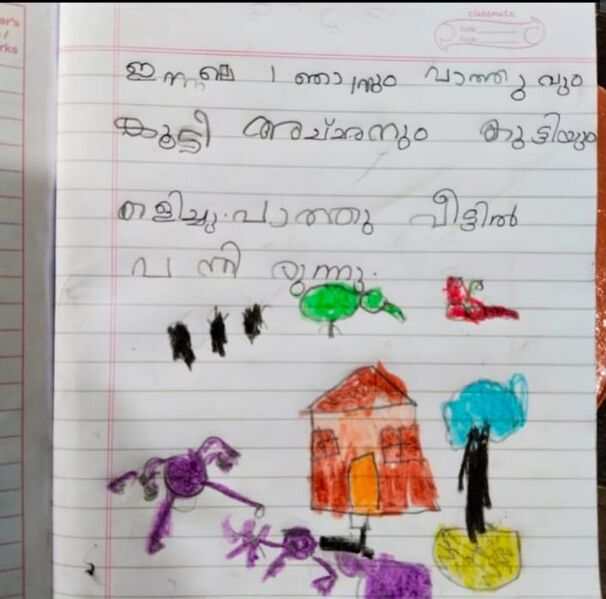 classmate
Date
Page
ഇന്നലെ ഞാനും പാത്തുവും
കൂട്ടി അച്ഛനും കുട്ടിയും
കളിച്ചു. പാത്തു വീട്ടിൽ
വന്നിരുന്നു.